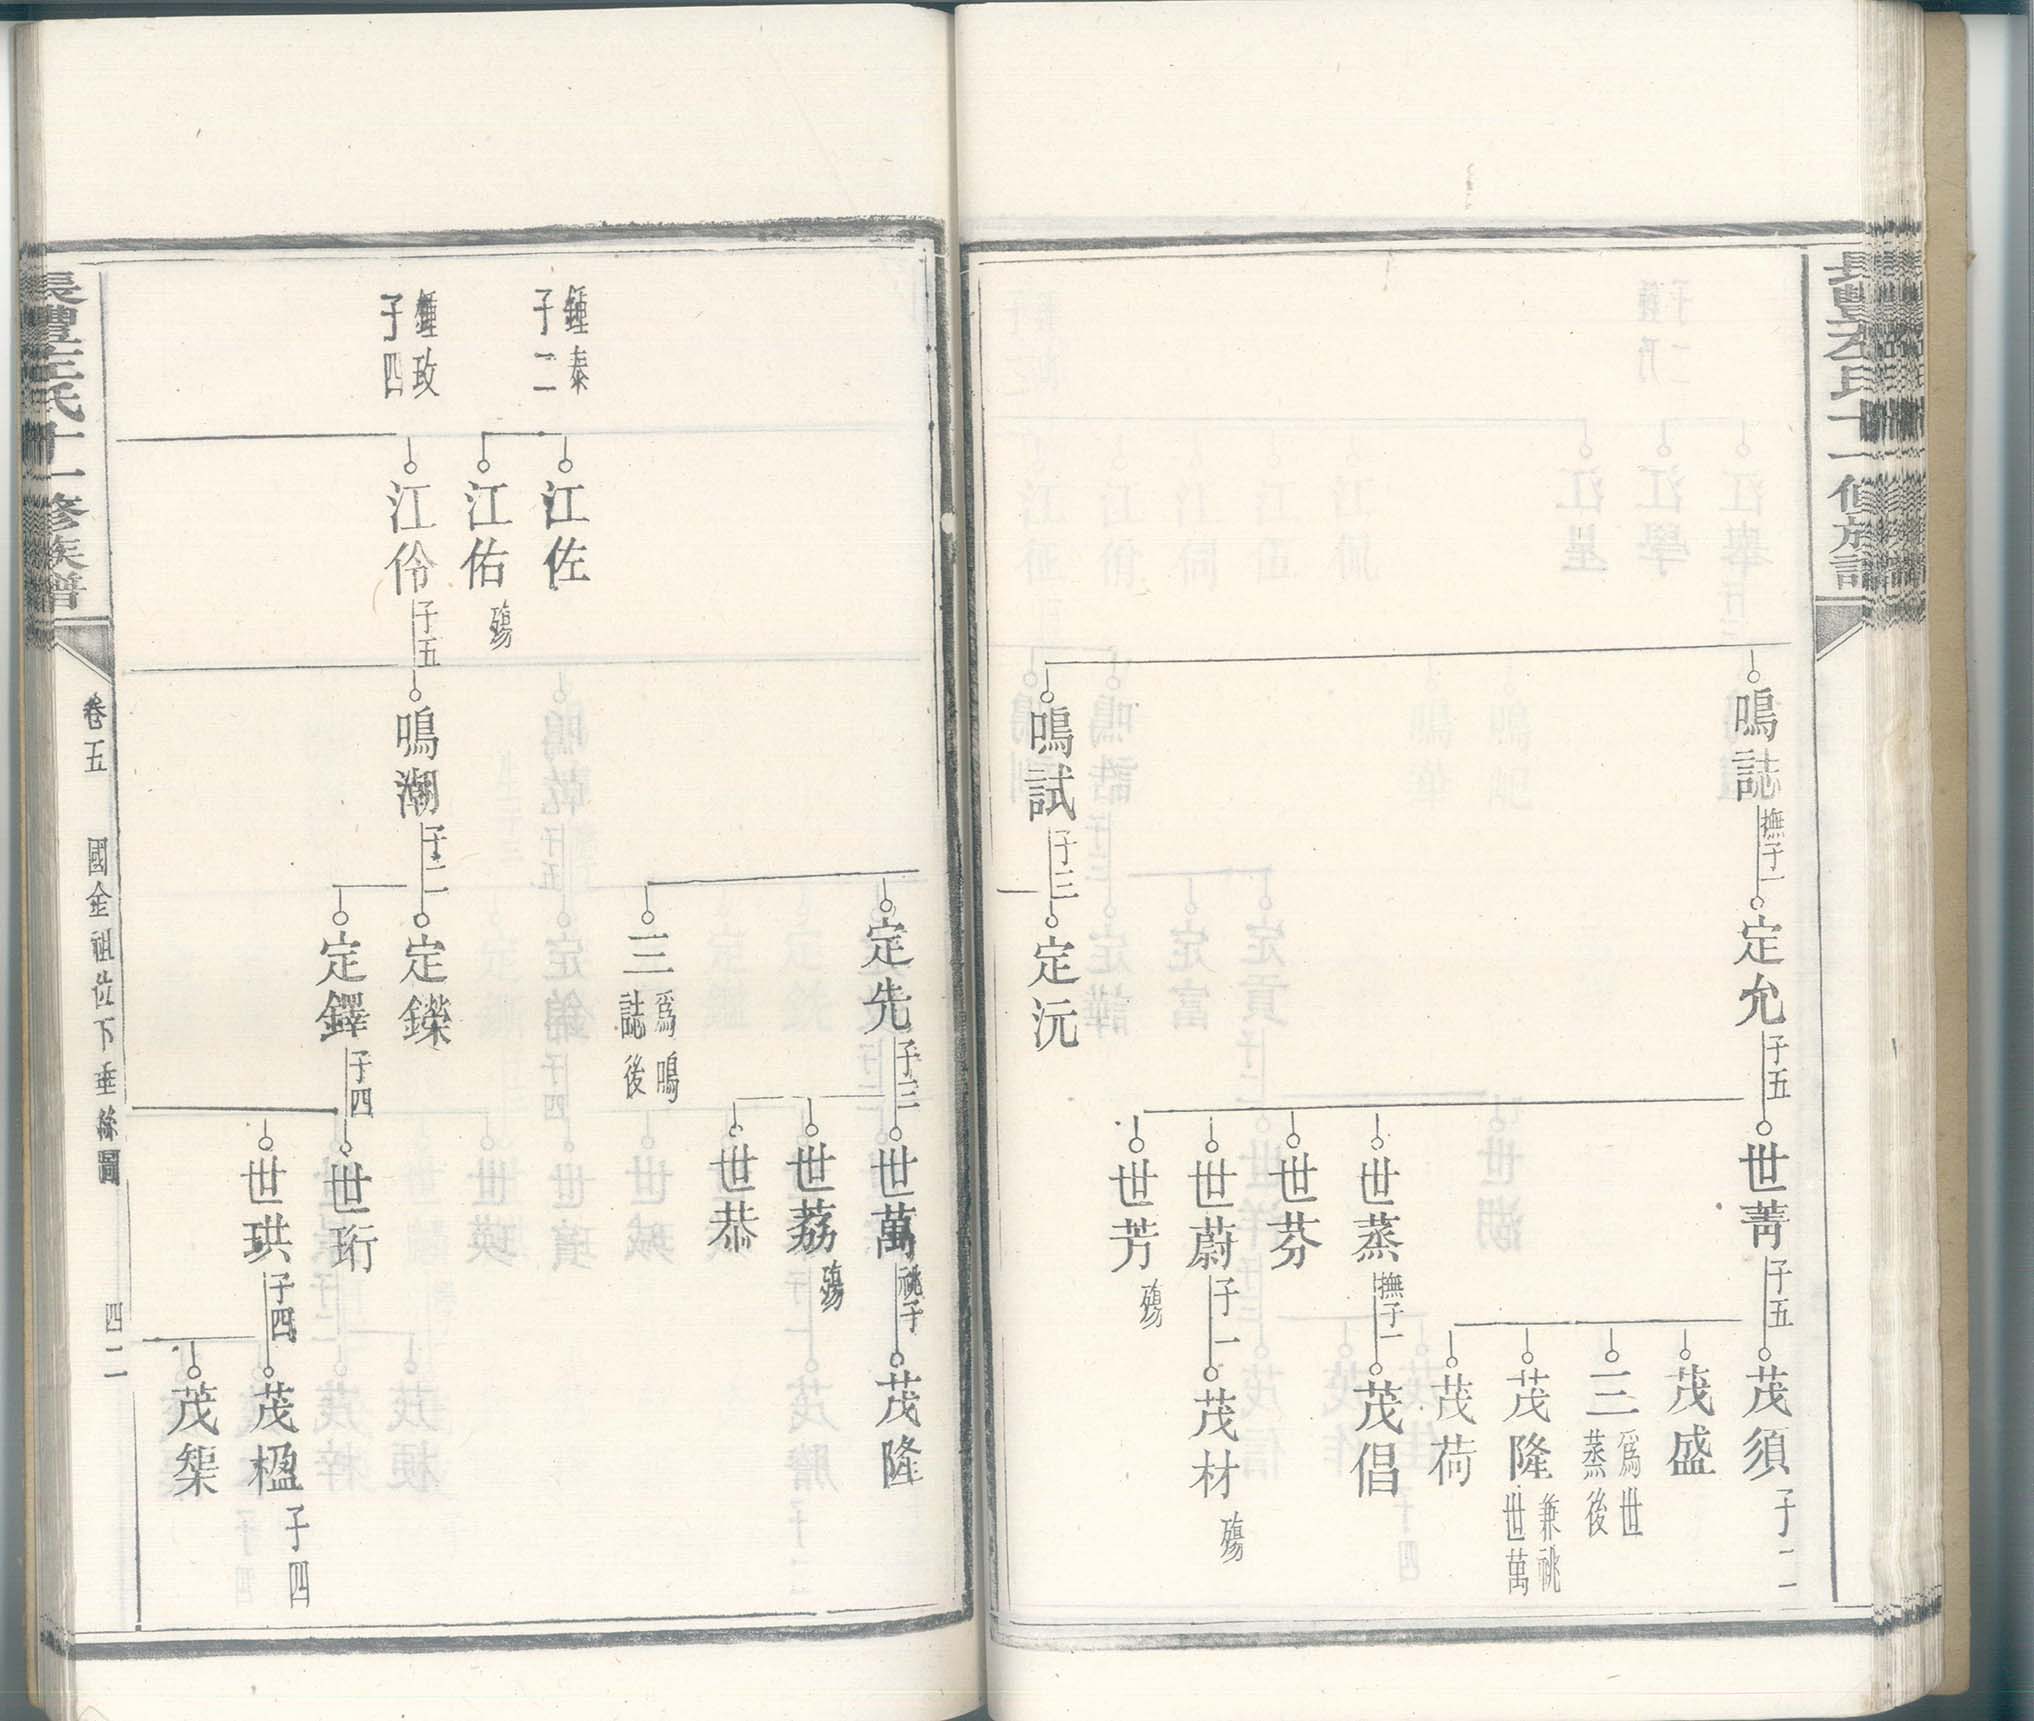 鳴誌 撫子一
鳴試 子三
定允 子五
定沅
世菁 子五
世蒸 撫子一
世芬
世蔚 子一
世芳 殤
茂須 子二
茂盛
三 爲世蒸後
茂隆 兼祧世萬
茂荷
茂倡
茂材 殤
鍾泰 子二
鍾玫 子四
江佐
江佑 殤
江伶 子五
鳴潮 子二
定先 子三
三 爲鳴誌後
定鑠
定鐸 子四
世萬 祧子
世荔 殤
世恭
世珩
世珙 子四
茂隆
茂楹 子四
茂榘
氏十一修族譜
卷五
國金祖位下垂絲圖
四二